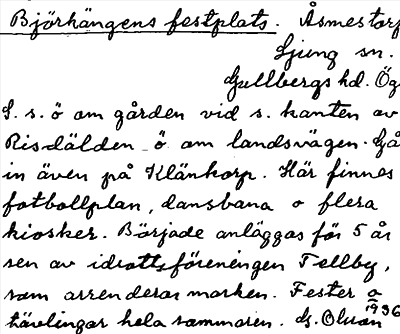 Björhängens festplats. Åsmestorp
Ljung sn.
Gullbergs hd. Ög
S. s. ö om gården vid s. kanten av
Risdälden ö om landsvägen. Gå
in även på Klänkorp. Här finnes
fotbollplan, dansbana o flera
kiosker. Började anläggas för 5 år
sen av idrottsföreningen Tellby,
som arrenderar marken. Fester o
tävlingar hela sommaren. G. Olsson 1936